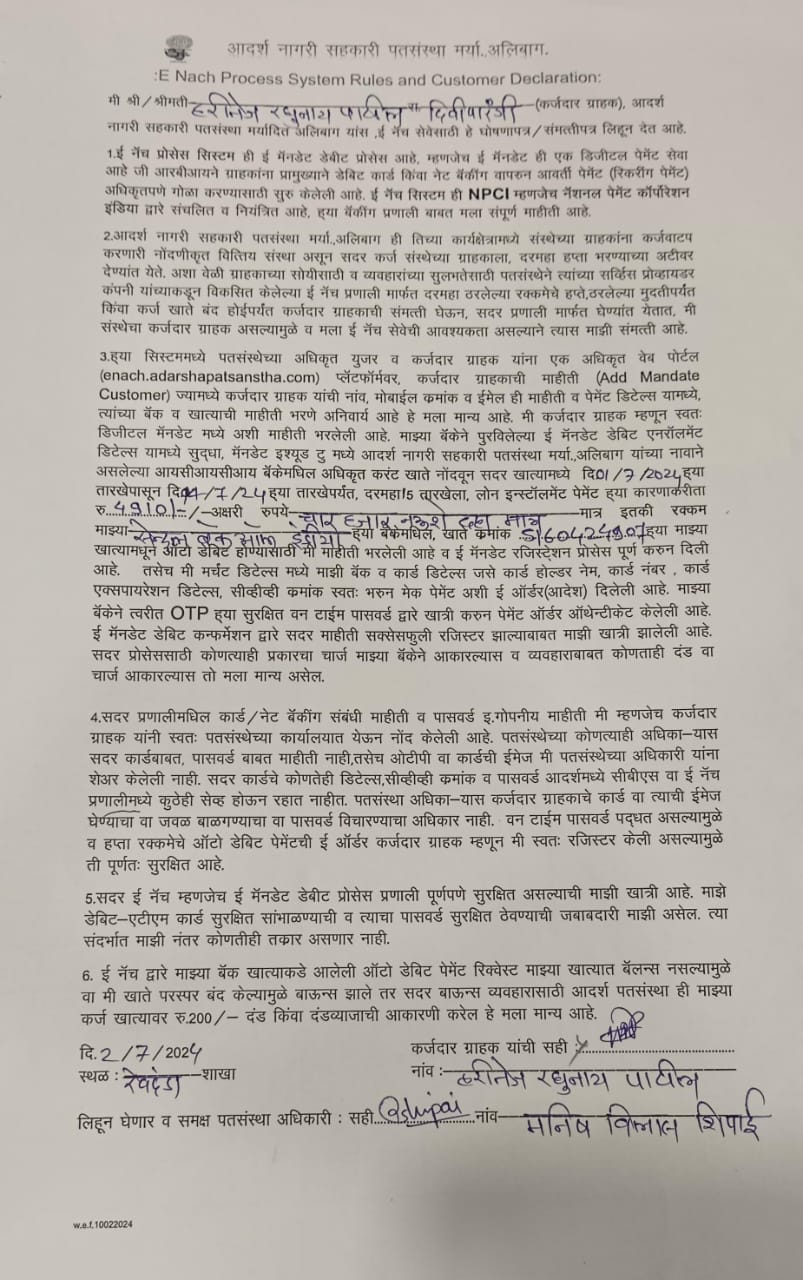 आदर्श नागरी सहकारी पतसंस्था मर्या..अलिबाग.
:E Nach Process System Rules and Customer Declaration:
मी श्री/श्रीमती हरीतेज रघुनाथ पाटील रा. दिवीपारंगी (कर्जदार ग्राहक), आदर्श
नागरी सहकारी पतसंस्था मर्यादित अलिबाग यांस ,ई नॅच सेवेसाठी हे घोषणापत्र/संमत्तीपत्र लिहून देत आहे.
1.ई नॅच प्रोसेस सिस्टिम ही ई मॅनडेट डेबीट प्रोसेस आहे, म्हणजेच ई मॅनडेट ही एक डिजीटल पेमेंट सेवा
आहे जी आरबीआयने ग्राहकांना प्रामुख्याने डेबिट कार्ड किंवा नेट बॅकींग वापरुन आवर्ती पेमेंट (रिकरींग पेमेंट)
अधिकृतपणे गोळा करण्यासाठी सुरु केलेली आहे. ई नॅच सिस्टम ही NPCI म्हणजेच नॅशनल पेमेंट कॉर्पोरेशन
इंडिया द्वारे संचलित व नियंत्रित आहे, ह्या बॅकींग प्रणाली बाबत मला संपूर्ण माहीती आहे.
2.आदर्श नागरी सहकारी पतसंस्था मर्या.,अलिबाग ही तिच्या कार्यक्षेत्रामध्ये संस्थेच्या ग्राहकांना कर्जवाटप
करणारी नोंदणीकृत वित्तिय संस्था असून सदर कर्ज संस्थेच्या ग्राहकाला, दरमहा हप्ता भरण्याच्या अटीवर
देण्यांत येते. अशा वेळी ग्राहकाच्या सोयीसाठी व व्यवहारांच्या सुलभतेसाठी पतसंस्थेने त्यांच्या सर्व्हिस प्रोव्हायडर
कंपनी यांच्याकडून विकसित केलेल्या ई नॅच प्रणाली मार्फत दरमहा ठरलेल्या रक्कमेचे हप्ते,ठरलेल्या मुदतीपर्यंत
किंवा कर्ज खाते बंद होईपर्यंत कर्जदार ग्राहकाची संमत्ती घेऊन, सदर प्रणाली मार्फत घेण्यांत येतात, मी
संस्थेचा कर्जदार ग्राहक असल्यामुळे व मला ई नॅच सेवेची आवश्यकता असल्याने त्यास माझी संमत्ती आहे.
3.ह्या सिस्टिममध्ये पतसंस्थेच्या अधिकृत युजर व कर्जदार ग्राहक यांना एक अधिकृत वेब पोर्टल
(enach.adarshapatsanstha.com) प्लॅटफॉर्मवर, कर्जदार ग्राहकाची माहीती (Add Mandate
Customer) ज्यामध्ये कर्जदार ग्राहक यांची नांव, मोबाईल कमांक व ईमेल ही माहीती व पेमेंट डिटेल्स यामध्ये,
त्यांच्या बॅक व खात्याची माहीती भरणे अनिवार्य आहे हे मला मान्य आहे. मी कर्जदार ग्राहक म्हणून स्वतः
डिजीटल मॅनडेट मध्ये अशी माहीती भरलेली आहे. माझ्या बॅकेने पुरविलेल्या ई मॅनडेट डेबिट एनरॉलमेंट
डिटेल्स यामध्ये सुद्धा, मॅनडेट इश्यूड टु मध्ये आदर्श नागरी सहकारी पतसंस्था मर्या.,अलिबाग यांच्या नावाने
असलेल्या आयसीआयसीआय बॅंकेमधिल अधिकृत करंट खाते नोंदवून सदर खात्यामध्ये दि01/7/2024ह्या
तारखेपासून दि /7/24 ह्या तारखेपर्यंत, दरमहा15 तारखेला, लोन इन्स्टॉलमेंट पेमेंट ह्या कारणाकरीता
रु.4910/-/-अक्षरी रुपये चार हजार नऊशे दहा मात्र मात्र इतकी रक्कम
माझ्या सेन्ट्रल बँक ऑफ इंडीया ह्या बॅकेमधिल, खाते कमांक .5160424907ह्या माझ्या
खात्यामधून ऑटो डेबिट होण्यासाठी मी माहीती भरलेली आहे व ई मॅनडेट रजिस्टेशन प्रोसेस पूर्ण करुन दिली
आहे. तसेच मी मर्चंट डिटेल्स मध्ये माझी बॅक व कार्ड डिटेल्स जसे कार्ड होल्डर नेम, कार्ड नंबर , कार्ड
एक्सपायरेशन डिटेल्स, सीव्हीव्ही कमांक स्वतः भरुन मेक पेमेंट अशी ई ऑर्डर(आदेश) दिलेली आहे. माझ्या
बॅकेने त्वरीत OTP ह्या सुरक्षित वन टाईम पासवर्ड द्वारे खात्री करुन पेमेंट ऑर्डर ऑथेन्टीकेट केलेली आहे.
ई मॅनडेट डेबिट कन्फर्मेशन द्वारे सदर माहीती सक्सेसफुली रजिस्टर झाल्याबाबत माझी खात्री झालेली आहे.
सदर प्रोसेससाठी कोणत्याही प्रकारचा चार्ज माझ्या बॅकेने आकारल्यास व व्यवहाराबाबत कोणताही दंड वा
चार्ज आकारल्यास तो मला मान्य असेल.
4.सदर प्रणालीमधिल कार्ड/नेट बॅकींग संबंधी माहीती व पासवर्ड इ.गोपनीय माहीती मी म्हणजेच कर्जदार
ग्राहक यांनी स्वतः पतसंस्थेच्या कार्यालयात येऊन नोंद केलेली आहे. पतसंस्थेच्या कोणत्याही अधिका-यास
सदर कार्डबाबत, पासवर्ड बाबत माहीती नाही,तसेच ओटीपी वा कार्डची ईमेज मी पतसंस्थेच्या अधिकारी यांना
शेअर केलेली नाही. सदर कार्डचे कोणतेही डिटेल्स,सीव्हीव्ही कमांक व पासवर्ड आदर्शमध्ये सीबीएस वा ई नॅच
प्रणालीमध्ये कुठेही सेव्ह होऊन रहात नाहीत. पतसंस्था अधिका-यास कर्जदार ग्राहकाचे कार्ड वा त्याची ईमेज
घेण्याचा वा जवळ बाळगण्याचा वा पासवर्ड विचारण्याचा अधिकार नाही. वन टाईम पासवर्ड पद्धत असल्यामुळे
व हप्ता रक्कमेचे ऑटो डेबिट पेमेंटची ई ऑर्डर कर्जदार ग्राहक म्हणून मी स्वतः रजिस्टर केली असल्यामुळे
ती पूर्णतः सुरक्षित आहे.
5.सदर ई नॅच म्हणजेच ई मॅनडेट डेबीट प्रोसेस प्रणाली पूर्णपणे सुरक्षित असल्याची माझी खात्री आहे. माझे
डेबिट-एटीएम कार्ड सुरक्षित सांभाळण्याची व त्याचा पासवर्ड सुरक्षित ठेवण्याची जबाबदारी माझी असेल. त्या
संदर्भात माझी नंतर कोणतीही तकार असणार नाही.
6. ई नॅच द्वारे माझ्या बॅक खात्याकडे आलेली ऑटो डेबिट पेमेंट रिक्वेस्ट माझ्या खात्यात बॅलन्स नसल्यामुळे
वा मी खाते परस्पर बंद केल्यामुळे बाऊन्स झाले तर सदर बाऊन्स व्यवहारासाठी आदर्श पतसंस्था ही माझ्या
कर्ज खात्यावर रु.200/- दंड किंवा दंडव्याजाची आकारणी करेल हे मला मान्य आहे.
दि.2/7/2024 कर्जदार ग्राहक यांची सही :
स्थळ : रेवदंडा-शाखा नांव : हरीतेज रघुनाथ पाटील
लिहून घेणार व समक्ष पतसंस्था अधिकारी : सही नांव मनिष विलास शिपाई
w.e.f.10022024